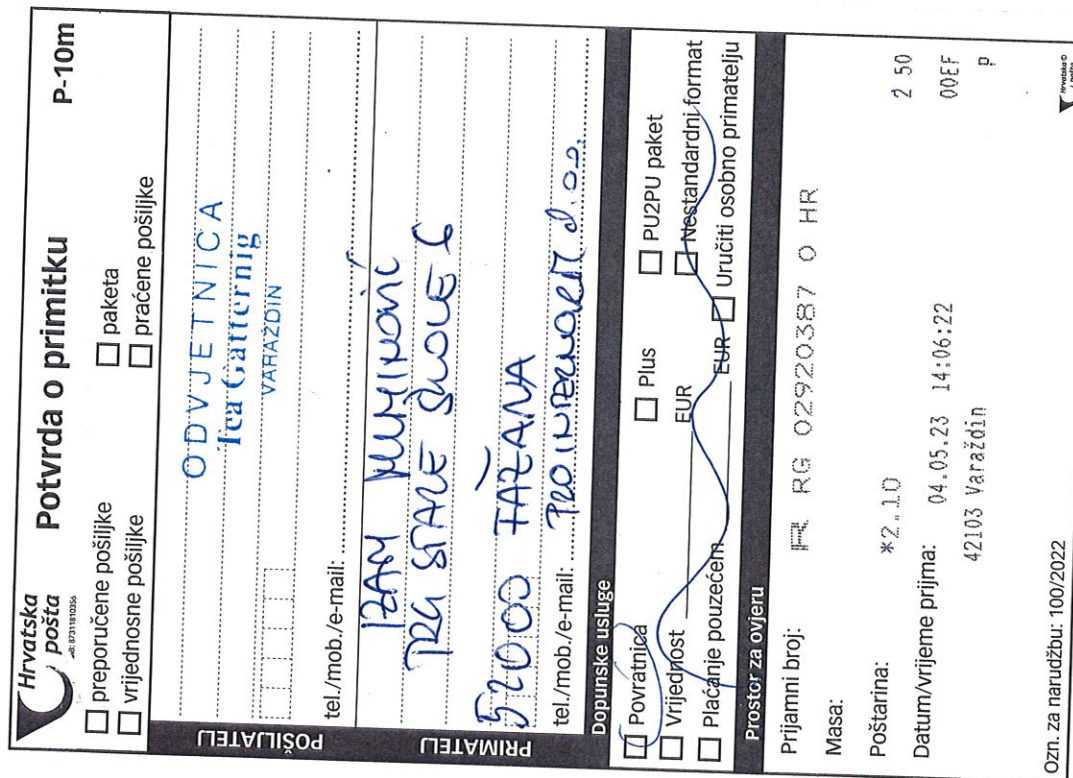 Hrvatska pošta
Potvrda o primitku
P-10m
preporučene pošiljke
paketa
vrijednosne pošiljke
praćene pošiljke
POŠILJATELJ
ODVJETNICA
Tea Gatternig
VARAŽDIN
tel./mob./e-mail:
PRIMATELJ
IZAM MUMINOVIĆ
TRG STARE ŠKOLE 6
52000 FAŽANA
tel./mob./e-mail:
d.o.o.
Dopunske usluge
Povratnica
Plus
PU2PU paket
Vrijednost EUR
Nestandardni format
Plaćanje pouzećem EUR
Uručiti osobno primatelju
Prostor za ovjeru
Prijamni broj: R RG 02920387 0 HR
Masa:
Poštarina: *2.10
2 50
Datum/vrijeme prijma: 04.05.23 14:06:22
00EF
42103 Varaždin
p
Ozn. za narudžbu: 100/2022
Hrvatska pošta